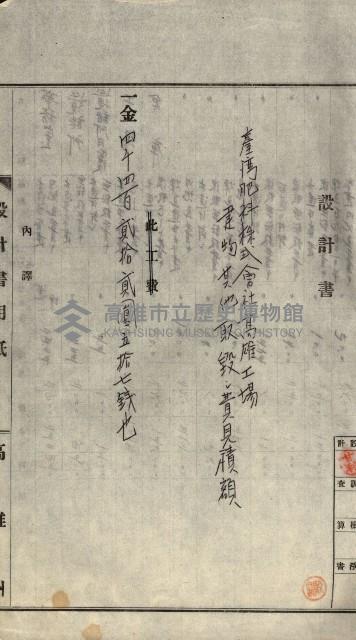 設計書
臺灣肥料株式會社高雄工場
建物其他取毀シ費見積額
此工費
一金四千四百貳拾貳圓五拾七錢也
內譯
設計書用紙
高雄州
設計
調查
檢算
淨書
高雄市立歷史博物館
KAOHSIUNG MUSEUM OF HISTORY